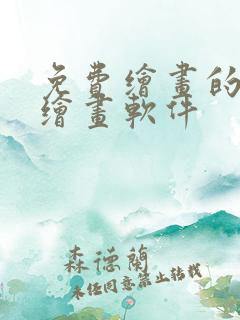 免費繪畫的
繪畫軟件
森德蘭
未经同意禁止转载